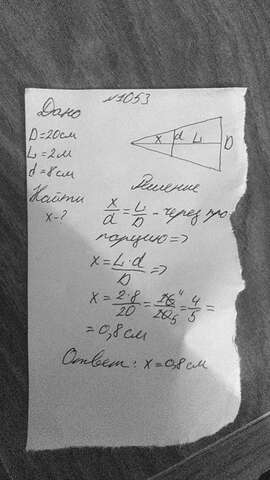 №1053
Дано
D=20см
L=2м
d=8см
Найти
x-?
x d L D
Решение
x/d = L/D - через про-
порцию =>
x = L·d/D =>
x = 2·8/20 = 16⁴/20₅ = 4/5 =
= 0,8 см
Ответ: x = 0,8 см